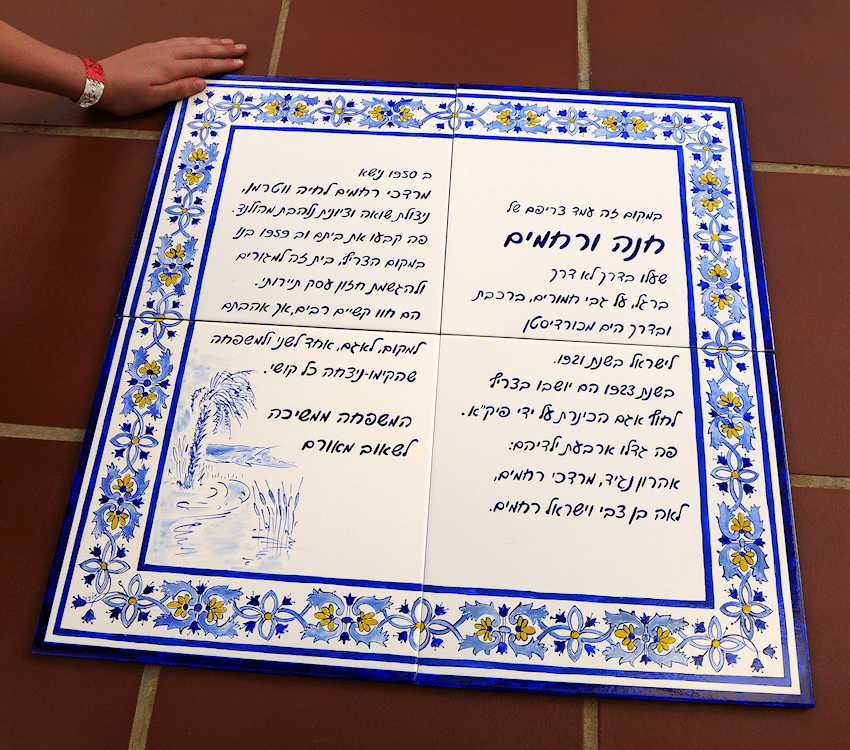 במקום זה עמד צריפם של
חנה ורחמים
שעלו בדרך לא דרך
ברגל, על גבי חמורים, ברכבת
ובדרך הים מכורדיסטן
לישראל בשנת 1921.
בשנת 1923 הם יושבו בצריף
לחוף אגם הכינרת על ידי פיק״א.
פה גדלו ארבעת ילדיהם:
אהרון נגיד, מרדכי רחמים,
לאה בן צבי וישראל רחמים.
ב 1950 נשא
מרדכי רחמים לחיה ווטרמן,
ניצולת שואה וציונית נלהבת מהולנד.
פה קבעו את ביתם וב 1959 בנו
במקום הצריף, בית זה למגורים
ולהגשמת חזון עסק תיירותי.
הם חוו קשיים רבים, אך אהבתם
למקום, לאגם, אחד לשני ולמשפחה
שהקימו-ניצחה כל קושי.
המשפחה ממשיכה
לשאוב מאורם